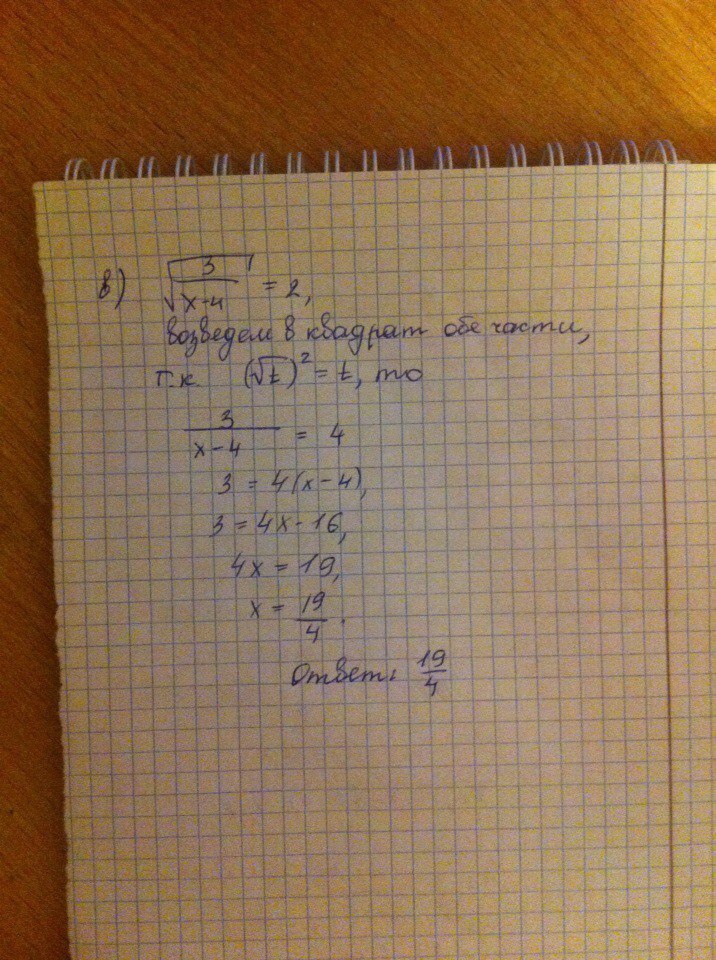 в) √(3/(x-4)) = 2,
возведем в квадрат обе части,
т.к. (√t)² = t, то
3/(x-4) = 4
3 = 4(x-4),
3 = 4x - 16,
4x = 19,
x = 19/4.
Ответ: 19/4